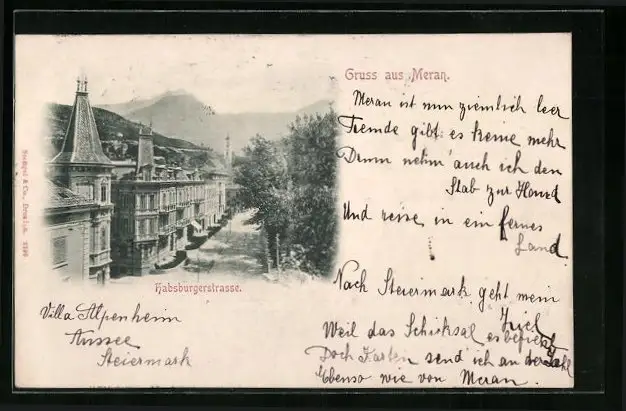 Gruss aus Meran.
Meran ist nun ziemlich leer
Fremde gibt es keine mehr
Drum nehm' auch ich den
Stab zur Hand
Und reise in ein fernes
Land.
Nach Steiermark geht mein
Ziel
Weil das Schicksal es befiehlt
Doch Karten send ich an der Zahl
Ebenso wie von Meran.
Habsburgerstrasse.
Villa Alpenheim
Aussee
Steiermark
Stengel & Co., Dresden.